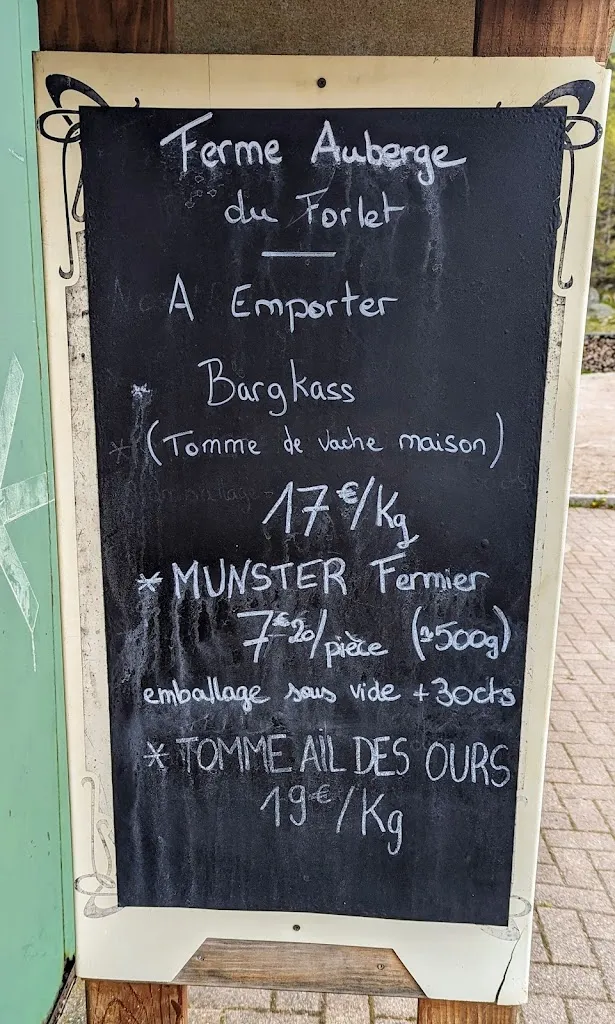 Ferme Auberge
du Forlet
A Emporter
* Bargkass
* (Tomme de vache maison)
17€/Kg
* MUNSTER Fermier
7€20/pièce (±500g)
emballage sous vide +30cts
* TOMME AIL DES OURS
19€/Kg